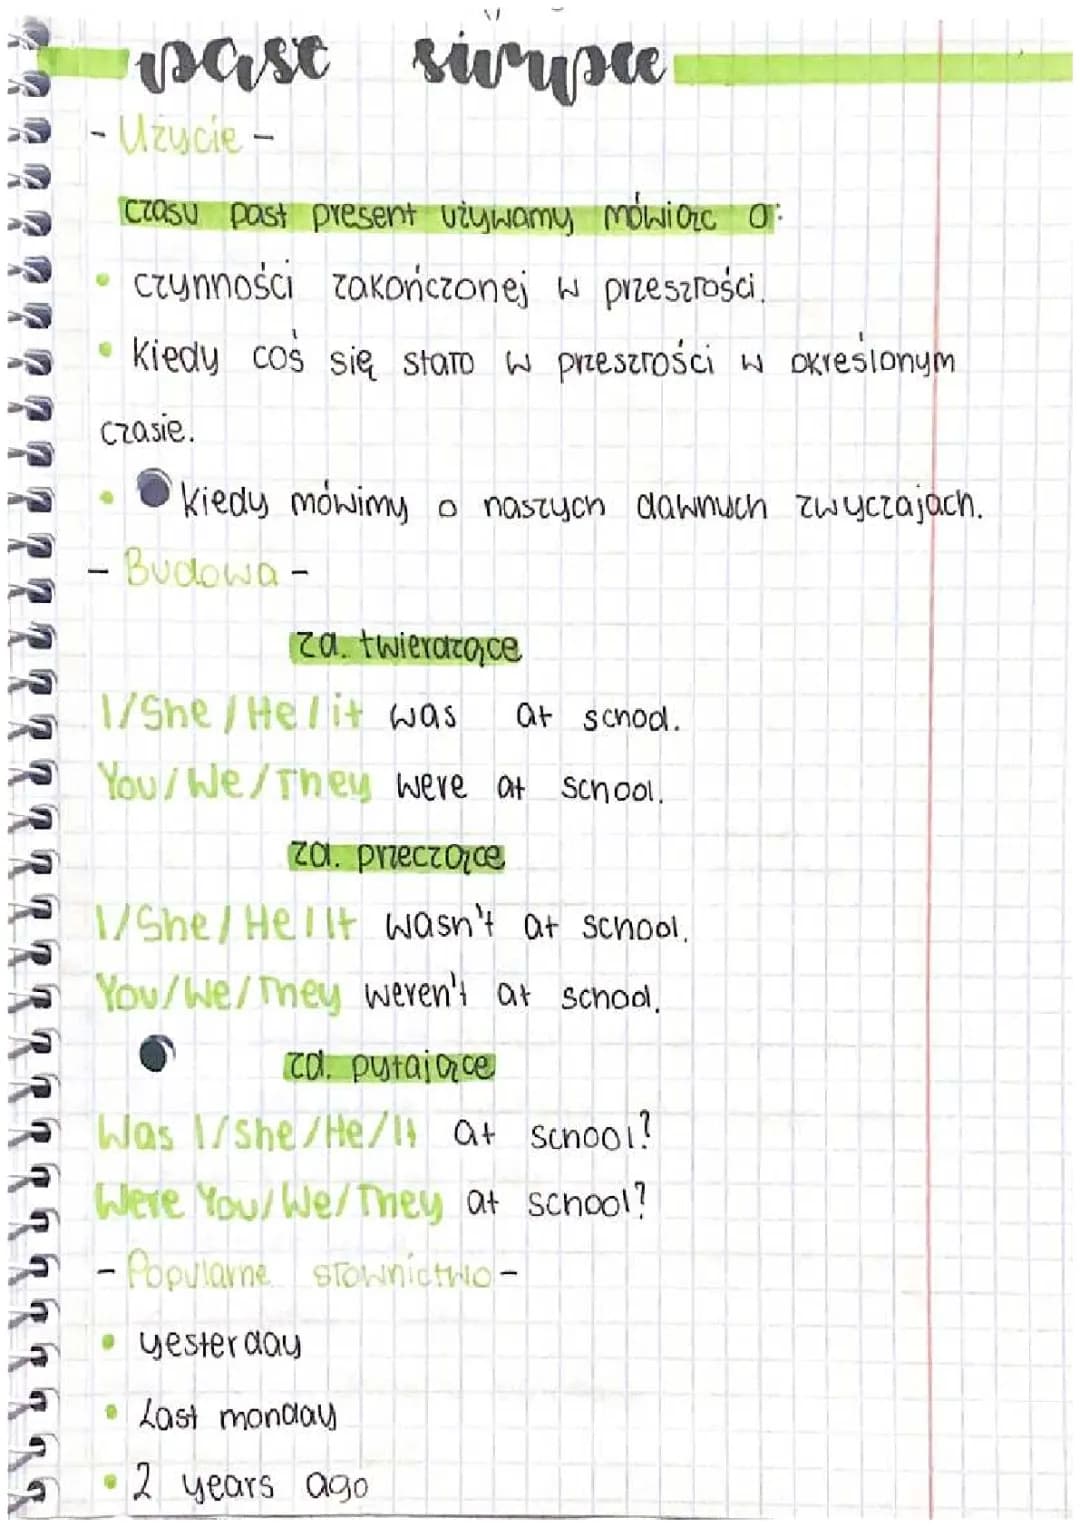 past simple
- Użycie -
czasu past present używamy mówiąc o:
• czynności zakończonej w przeszłości.
• kiedy coś się stało w przeszłości w określonym
czasie.
• kiedy mówimy o naszych dawnych zwyczajach.
- Budowa -
za. twierdzące
I/She/He/it was at school.
You/We/They were at school.
zd. przeczące
I/She/He/It wasn't at school.
You/We/They weren't at school.
zd. pytające
Was I/she/He/It at school?
Were You/We/They at school?
- Popularne słownictwo -
• yesterday
• Last monday
• 2 years ago